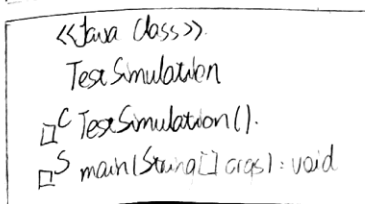 <<Java Class>>.
TestSimulation
□ᶜ TestSimulation().
□ˢ main(String[] args): void